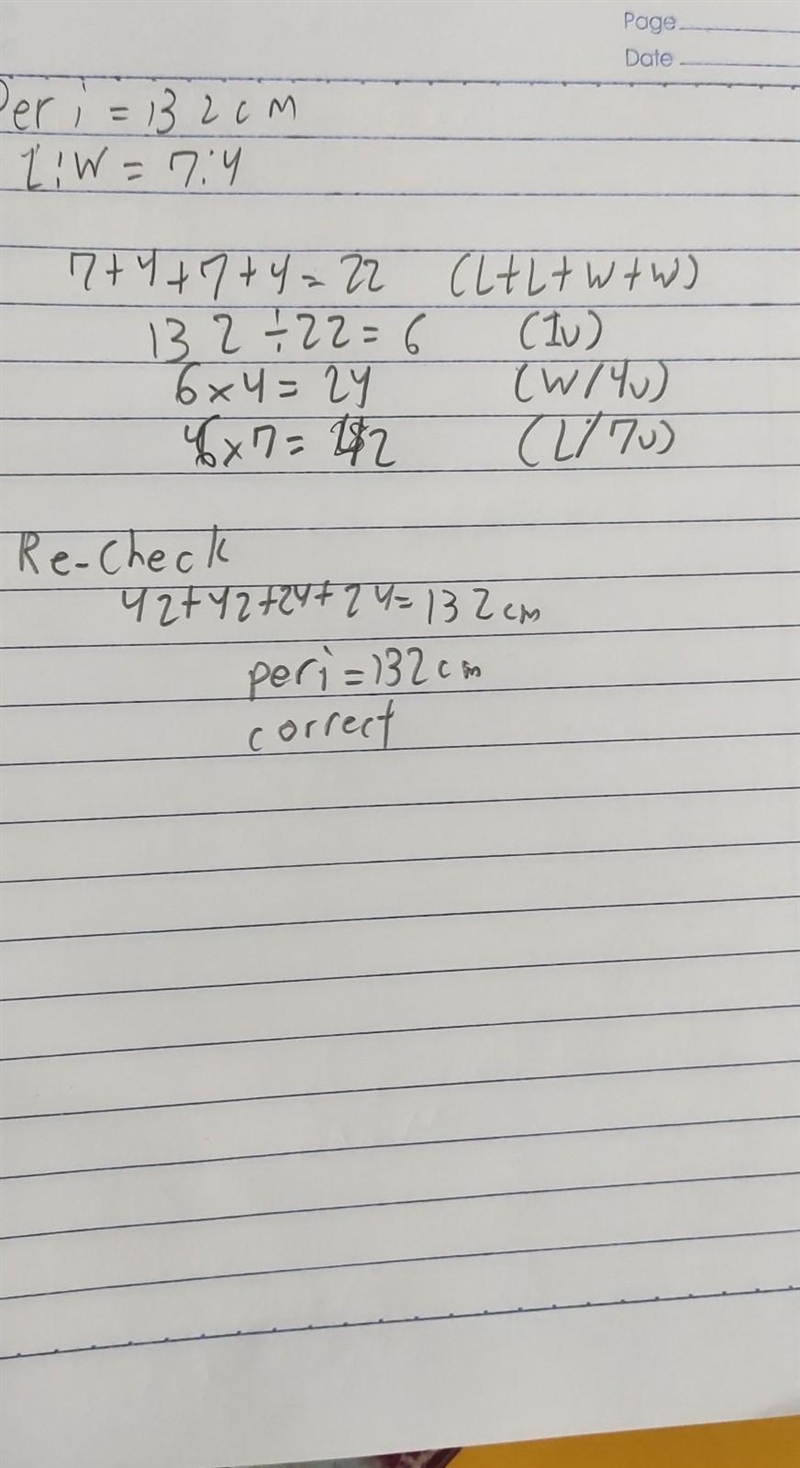 Page
Date
Peri = 132cm
L:W = 7:4
7+4+7+4=22 (L+L+W+W)
132÷22=6 (1u)
6×4=24 (W/4u)
6×7=42 (L/7u)
Re-Check
42+42+24+24=132cm
peri=132cm
correct